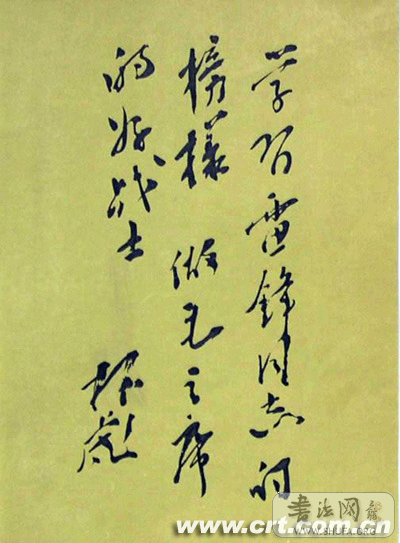 学习雷锋同志的
榜样 做毛主席
的好战士
林彪
书法网
WWW.SHUFA.ORG
www.crt.com.cn